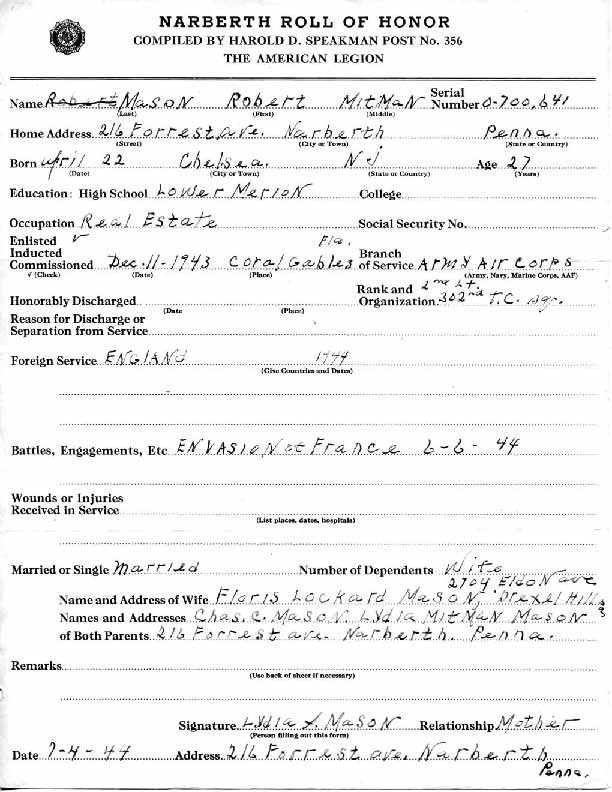 NARBERTH ROLL OF HONOR
COMPILED BY HAROLD D. SPEAKMAN POST No. 356
THE AMERICAN LEGION
Name Robert MASON Robert MITMAN Serial Number O-700,641
(Last) (First) (Middle)
Home Address 216 Forrest ave. Narberth Penna.
(Street) (City or Town) (State or Country)
Born April 22 Chelsea. N J Age 27
(Date) (City or Town) (State or Country) (Years)
Education: High School Lower Merion College
Occupation Real Estate Social Security No.
Enlisted ✓ Fla.
Inducted Branch
Commissioned Dec. 11-1943 Coral Gables of Service Army Air Corps
✓ (Check) (Date) (Place) (Army, Navy, Marine Corps, AAF)
Rank and 2nd Lt.
Honorably Discharged Organization 302nd T.C. Sqr.
(Date (Place)
Reason for Discharge or
Separation from Service
Foreign Service ENGLAND 1944
(Give Countries and Dates)
Battles, Engagements, Etc ENVASION of France 6-6-44
Wounds or Injuries
Received in Service
(List places, dates, hospitals)
Married or Single Married Number of Dependents Wife
2704 Eldon ave
Name and Address of Wife Floris Lockard Mason, Drexel Hill
Names and Addresses Chas. C. Mason. Lydia Mitman Mason
of Both Parents 216 Forrest ave. Narberth. Penna.
Remarks
(Use back of sheet if necessary)
Signature Lydia S. Mason Relationship Mother
(Person filling out this form)
Date 7-4-44 Address 216 Forrest ave. Narberth
Penna.